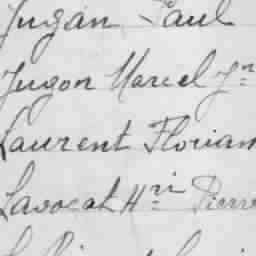 Jugan Paul
Jugon Marcel Jn
Laurent Florian
Lavocat Hri Pierre